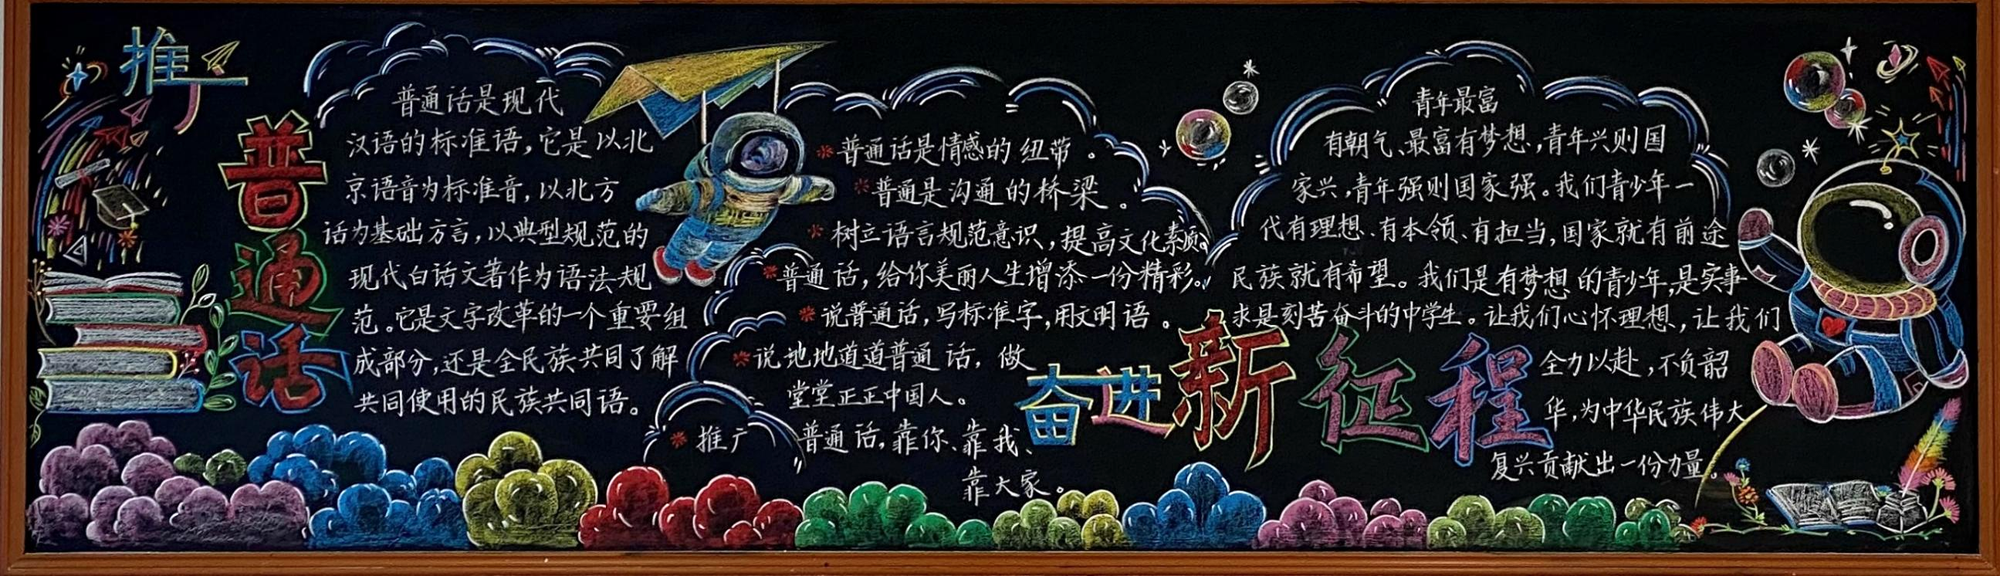 推广
普通话
普通话是现代
汉语的标准语，它是以北
京语音为标准音，以北方
话为基础方言，以典型规范的
现代白话文著作为语法规
范。它是文字改革的一个重要组
成部分，还是全民族共同了解
共同使用的民族共同语。
*普通话是情感的纽带。
*普通是沟通的桥梁。
*树立语言规范意识，提高文化素质。
*普通话，给你美丽人生增添一份精彩。
*说普通话，写标准字，用文明语。
*说地地道道普通话，做
堂堂正正中国人。
*推广普通话，靠你、靠我、
靠大家。
奋进新征程
青年最富
有朝气、最富有梦想，青年兴则国
家兴，青年强则国家强。我们青少年一
代有理想、有本领、有担当，国家就有前途
民族就有希望。我们是有梦想的青少年，是实事
求是刻苦奋斗的中学生。让我们心怀理想，让我们
全力以赴，不负韶
华，为中华民族伟大
复兴贡献出一份力量。